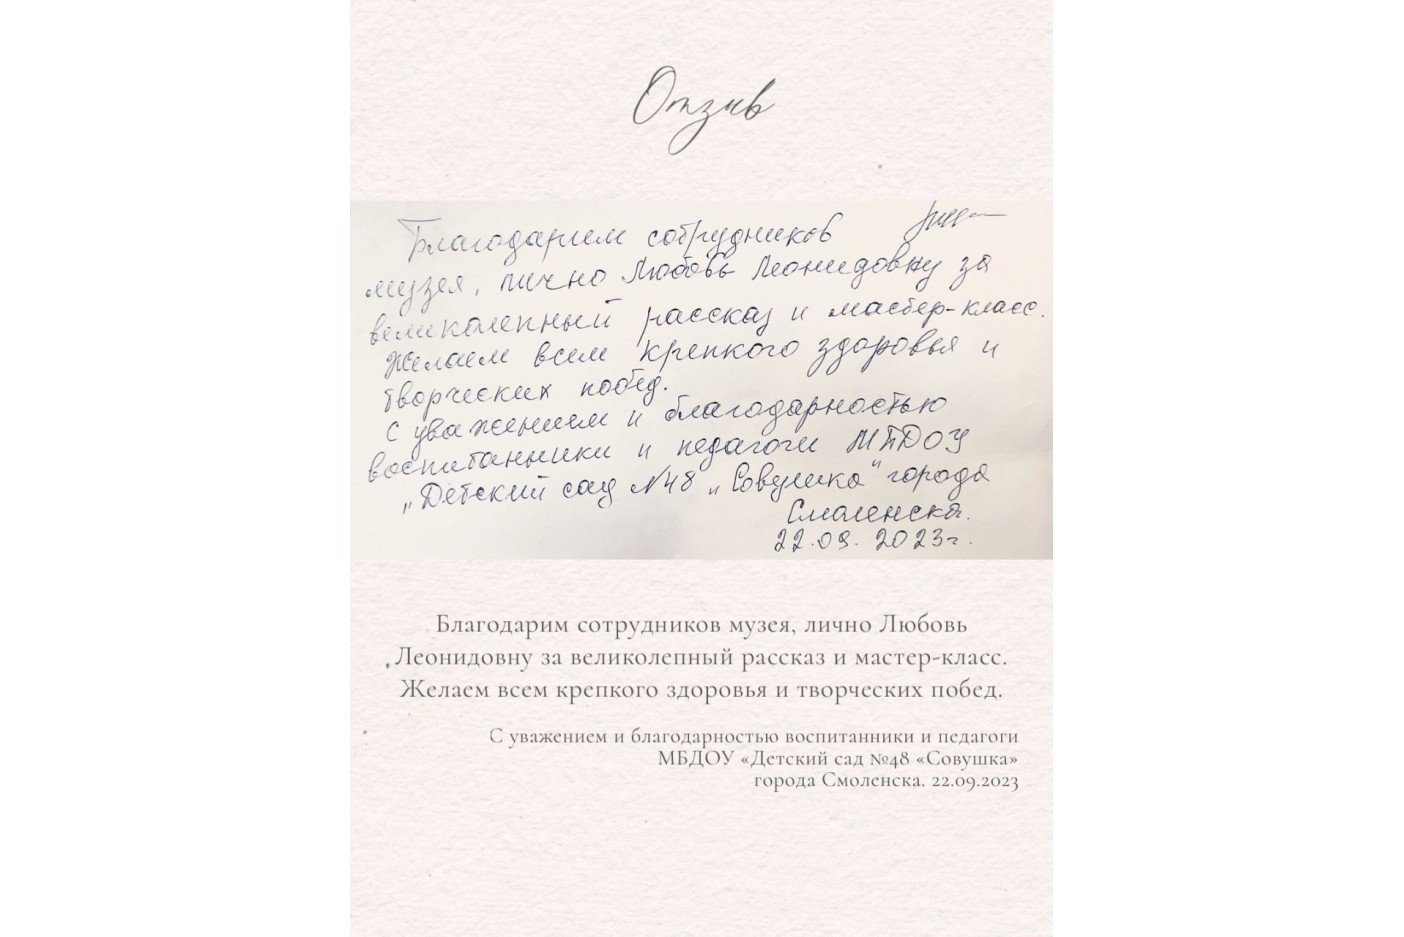 Отзыв
Благодарим сотрудников
музея, лично Любовь Леонидовну за
великолепный рассказ и мастер-класс.
Желаем всем крепкого здоровья и
творческих побед.
С уважением и благодарностью
воспитанники и педагоги МБДОУ
„Детский сад №48 „Совушка" города
Смоленска.
22.09.2023г.
Благодарим сотрудников музея, лично Любовь
Леонидовну за великолепный рассказ и мастер-класс.
Желаем всем крепкого здоровья и творческих побед.
С уважением и благодарностью воспитанники и педагоги
МБДОУ «Детский сад №48 «Совушка»
города Смоленска. 22.09.2023